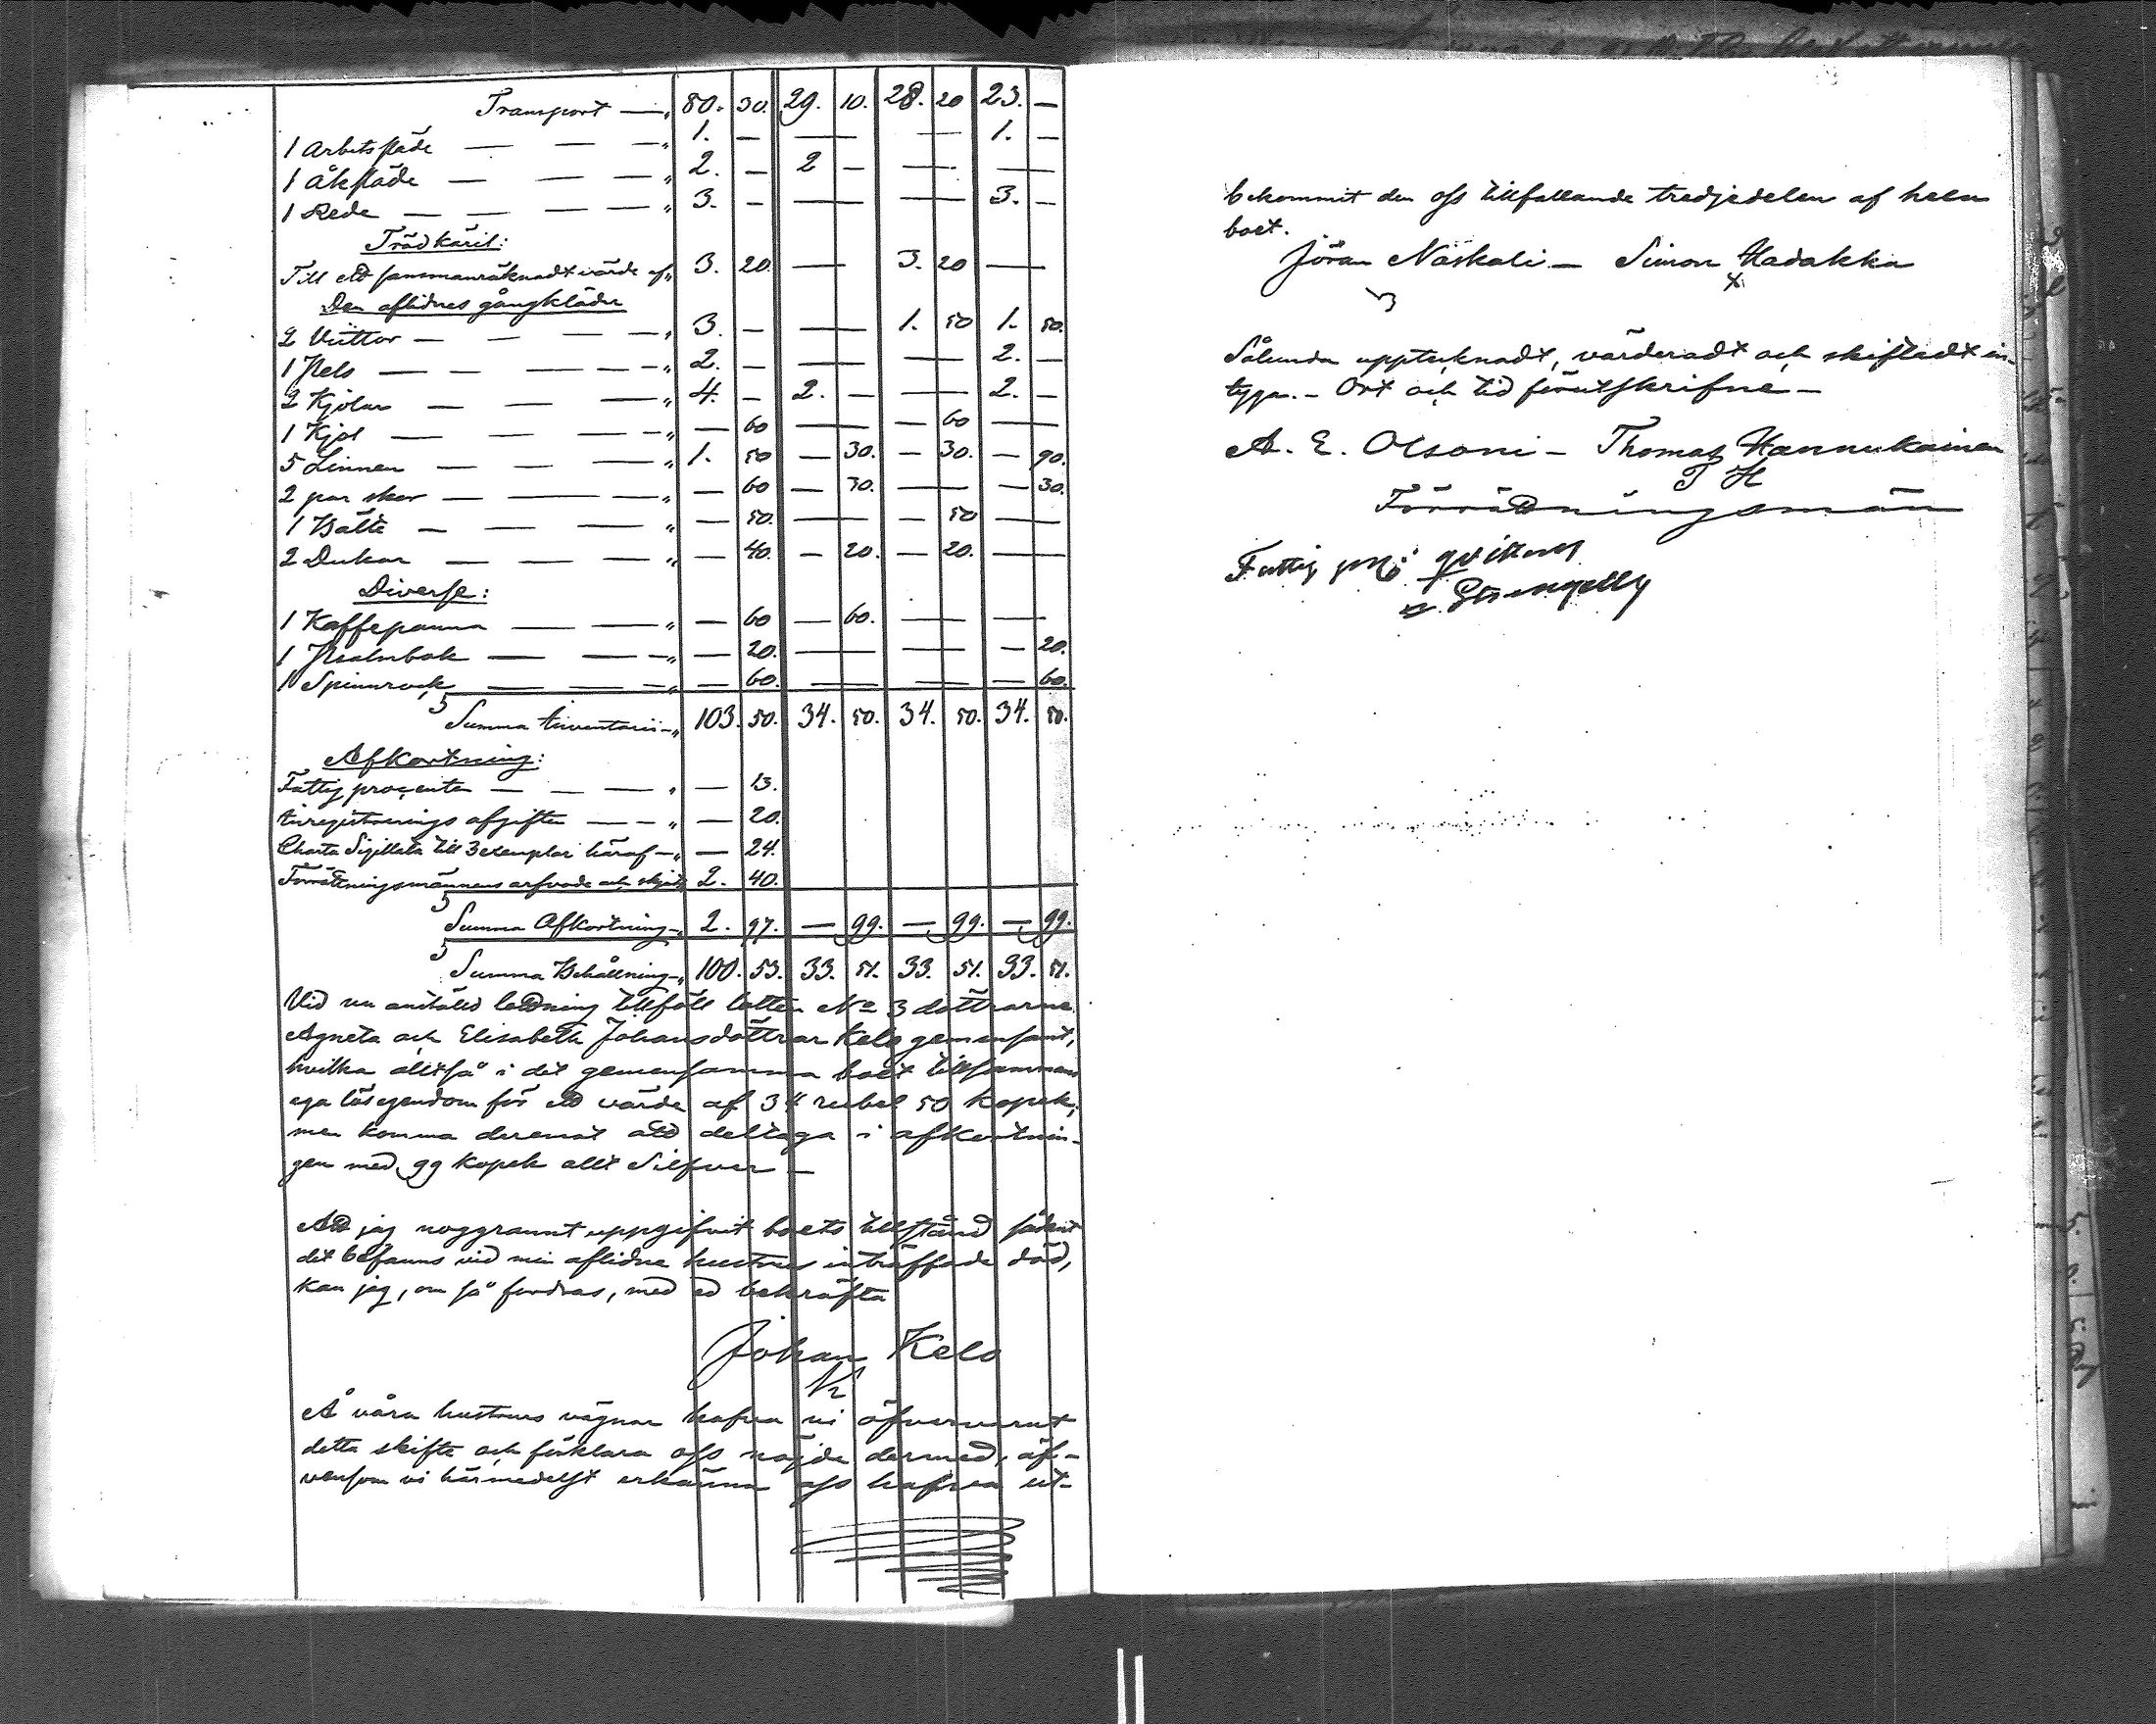 Transport — „ 80. 30. 29. 10. 28. 20 23. —
1 Arbetssläde — — — „ 1. — — — 1. —
1 Åksläde — — — „ 2. — 2 — — —
1 Rede — — — — „ 3. — — — 3. —
Trädkäril:
Till ett sammanräknadt värde af „ 3. 20. — 3. 20 —
Den aflidnes gångkläder
2 Vüttor — — — „ 3. — — 1. 50 1. 50.
1 Pels — — — — „ 2. — — — 2. —
2 Kjolar — — — „ 4. — 2. — — 2. —
1 Kjol — — — — „ — 60 — — 60 —
5 Linnen — — — „ 1. 50 — 30. — 30. — 90.
2 par skor — — — „ — 60 — 30. — — 30.
1 Bälte — — — „ — 50. — — 50 —
2 Dukar — — — „ — 40. — 20. — 20. —
Diverse:
1 Kaffepanna — — „ — 60 — 60. — —
1 Psalmbok — — — „ — 20. — — — 20.
1 Spinnrock — — — „ — 60. — — — 60.
Summa Inventarii — „ 103. 50. 34. 50. 34. 50. 34. 50.
Afkortning:
Fattig procenten — — — „ — 13.
Inregistrerings afgiften — — „ — 20.
Charta Sigillata till 3 exemplar häraf — „ — 24.
Förrättningsmännens arfvode och 2. 40.
Summa Afkortning — „ 2. 97. — 99. — 99. — 99.
Summa Behållning — „ 100. 53. 33. 51. 33. 51. 33. 51.
Vid nu anstäld lottning tillföll lotten No 3 döttrarne
Agneta och Elisabeth Johansdöttrar Kelo gemensamt,
hvilka alltså i det gemensamma boet tillsamman
ega lösegendom för ett värde af 34 rubel 50 kopek,
men komma deremot att deltaga i afkortnin-
gen med 99 kopek allt Silfver —
Att jag noggrannt uppgifvit boets tillstånd sådant
det befanns vid min aflidne hustrus inträffade död,
kan jag, om så fordras, med ed bekräfta
Johan Kelo
Å våra hustrurs vägnar hafva vi öfvervarit
detta skifte och förklara oss nöjde dermed, äf-
vensom vi härmedelst erkänna oss hafva ut-
bekommit den oss tillfallande tredjedelen af hela
boet.
Jöran Näskali — Simon Hadakka
Sålunda upptecknadt, värderadt och skiftadt in-
tyga. — Ort och tid förutskrifne —
A. E. Olsoni — Thomas Hannukainen
T H
Förrättningsmän
Fattig qvitteras